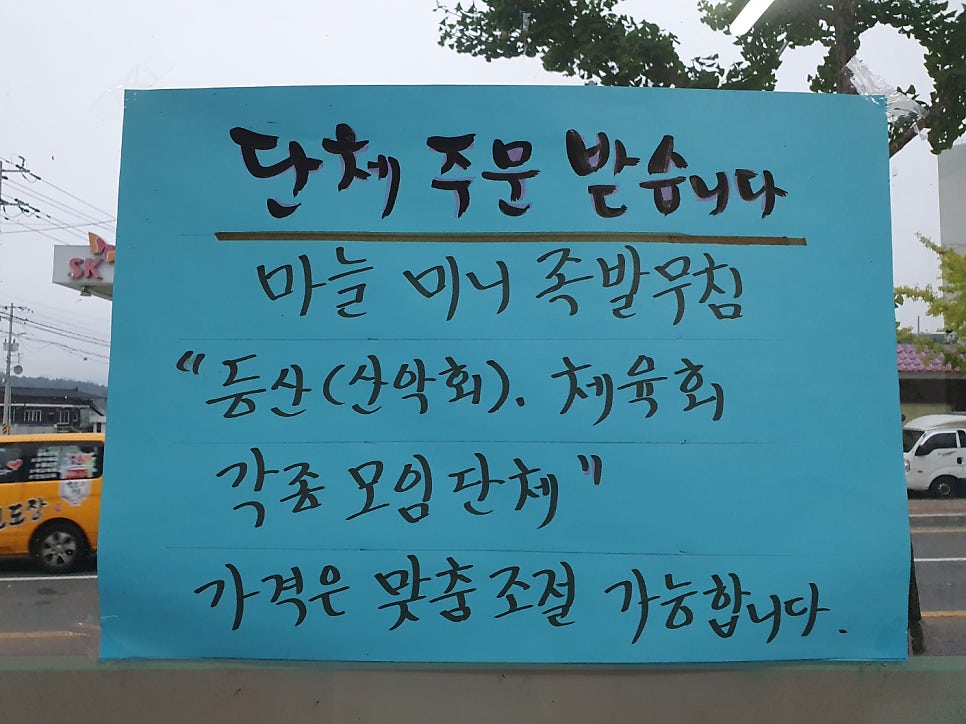 단체 주문 받습니다
마늘 미니 족발무침
"등산(산악회). 체육회
각종 모임단체"
가격은 맞춤조절 가능합니다.
SK
도장